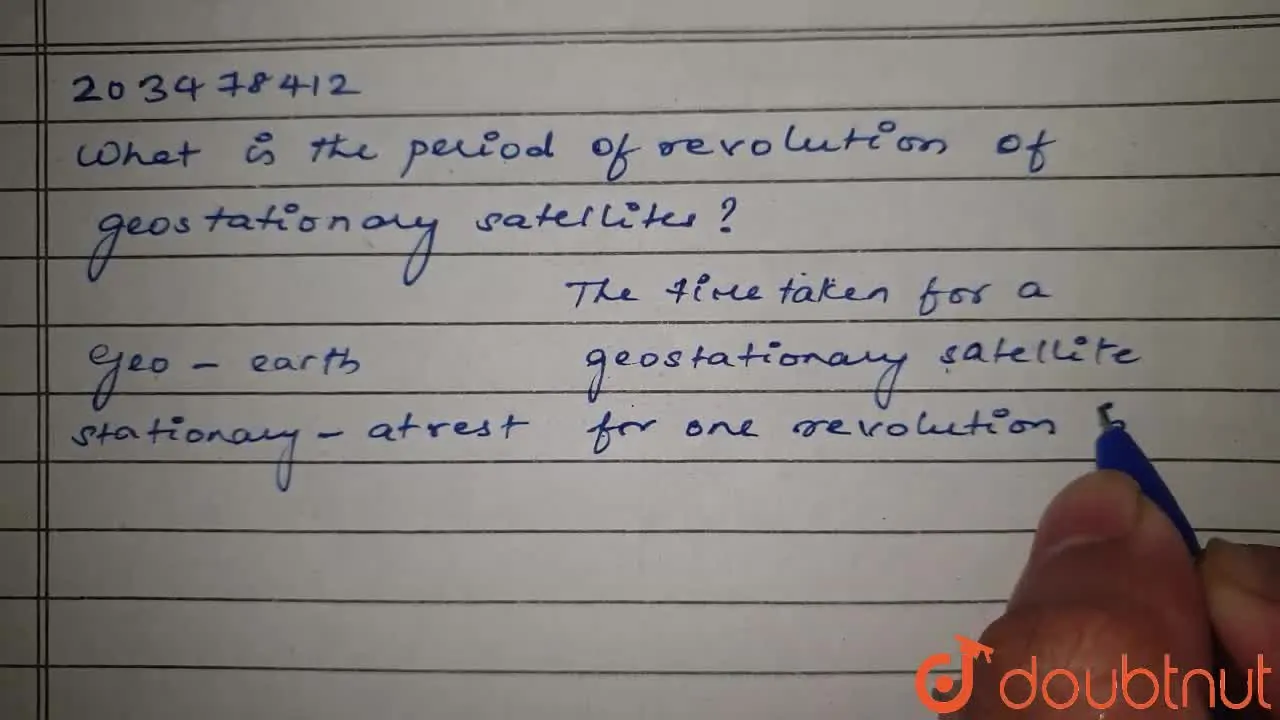 203478412
What is the period of revolution of
geostationary satellites?
The time taken for a
Geo - earth geostationary satellite
stationary - at rest for one revolution
doubtnut